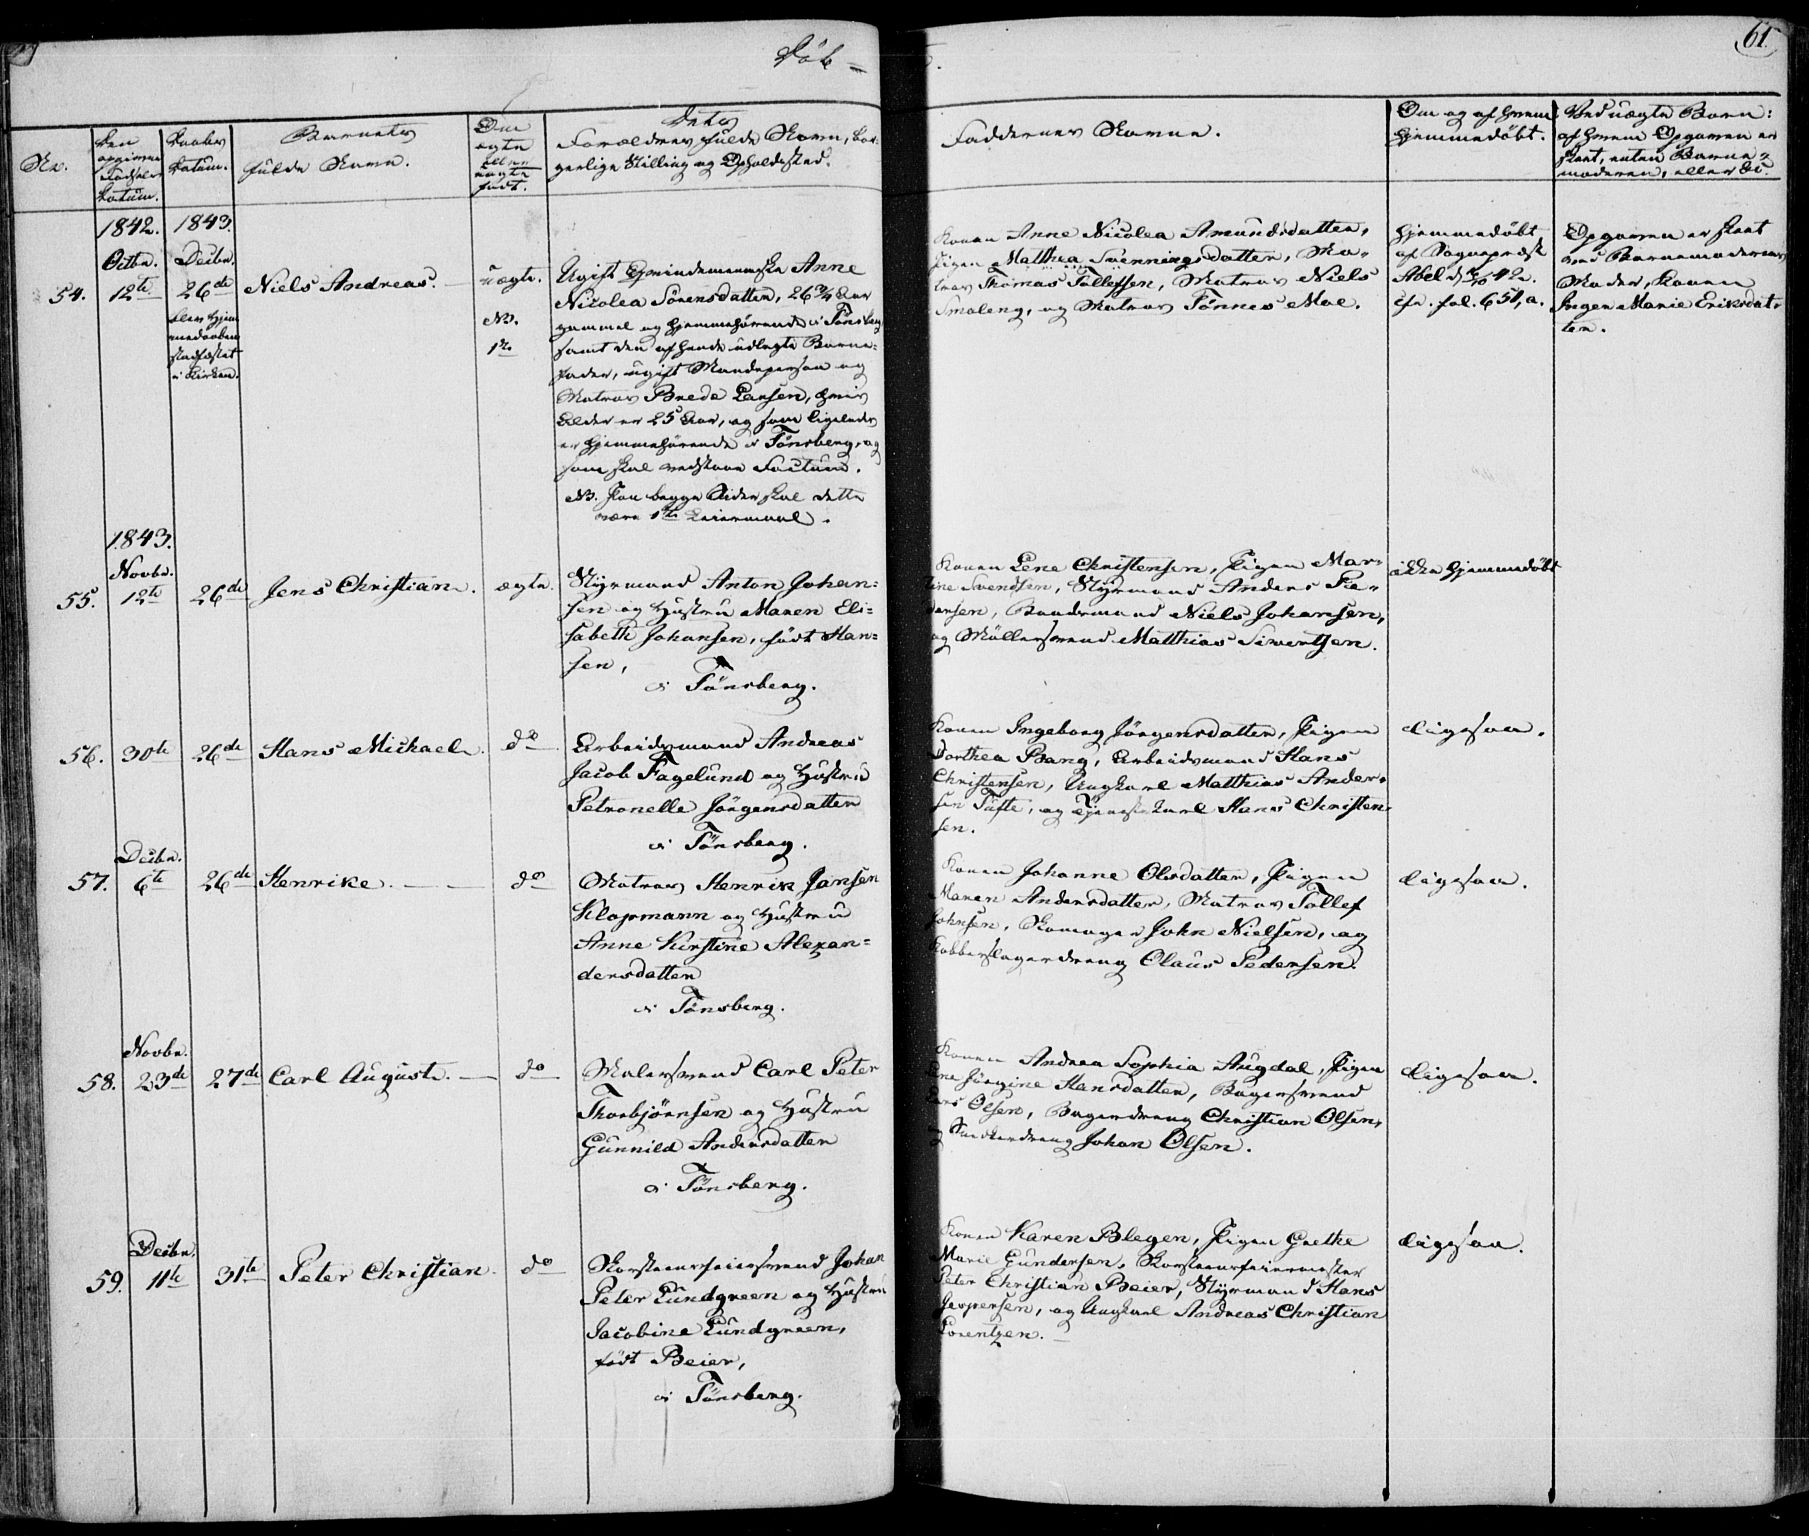 Døb-
61.
No.
Den opgivne Fødsels Datum.
Daabs Datum.
Barnets fulde Navn.
Om ægte eller uægte født.
Dets Forældres fulde Navn, borgerlige Stilling og Opholdssted.
Faddernes Navne.
Om og af hvem hjemmedøbt.
Ved uægte Børn: af hvem Opgaven er skeet, enten Barnemoderen, eller &c.
1842. 1843.
Octbr. Decbr.
54. 12te 26de Niels Andreas. uægte.
blev Hjemmedaaben stadfæstet i Kirken.
NB. 1te
Ugift Qvindemenneske Anne
Nicolea Sørensdatter, 26 3/4 Aar
gammel og hjemmehørende i Tønsberg
samt den af hende udlagte Barne-
fader, ugift Mandsperson og
Matros Brede Larsen, hvis
Alder er 25 Aar, og som ligeledes
er hjemmehørende i Tønsberg, og
som skal vedstaae Factum.
NB. Fra begge Sider skal dette
være 1ste Leiermaal.
Konen Anne Nicolea Amundsdatter,
Pigen Matthea Svenningsdatter, Ma-
tros Thomas Tollefsen, Matros Niels
Smaleng, og Matros Tønnes Moe.
Hjemmedøbt
af Sognepræst
Abel
cfr. fol. 651, a.
Opgaven er skeet
ved Barnemoderens
Moder, Konen
Inger Marie Eriksdat-
ter.
1843.
Novbr.
55. 12te 26de Jens Christian. ægte.
Styrmand Anton Johan-
sen og Hustru Maren Eli-
sabeth Johansen, født Han-
sen,
i Tønsberg.
Konen Lene Christensen, Pigen Mar-
tine Svendsen, Styrmand Anders Pe-
dersen, Baadsmand Niels Johansen,
og Møllersvend Matthias Sivertsen.
ikke hjemmedøbt
56. 30te 26de Hans Michael. do
Arbeidsmand Andreas
Jacob Fagelund og Hustru
Petronelle Jørgensdatter
i Tønsberg.
Konen Ingeborg Jørgensdatter, Pigen
Dorthea Bang, Arbeidsmand Hans
Christensen, Ungkarl Matthias Ander-
sen Tufte, og Tjenestekarl Hans Christen-
sen.
ligesaa.
Decbr.
57. 6te 26de Henrike. do
Matros Henrik Jansen
Klopmann og Hustru
Anne Kirstine Alexan-
dersdatter
i Tønsberg.
Konen Johanne Olsdatter, Pigen
Maren Andersdatter, Matros Tollef
Johnsen, Skomager John Nielsen, og
Kobberslagerdreng Claus Pedersen.
ligesaa.
Novbr.
58. 23de 27de Carl August. do
Malersvend Carl Peter
Thorbjørnsen og Hustru
Gunnild Andersdatter
i Tønsberg.
Konen Andrea Sophia Augdal, Pigen
Jørgine Hansdatter, Bagersvend
Lars Olsen, Bagerdreng Christian Olsen,
og Snedkerdreng Johan Olsen.
ligesaa.
Decbr.
59. 11te 31te Peter Christian. do
Skorsteensfeiersvend Johan
Peter Lundgreen og Hustru
Jacobine Lundgreen,
født Beier,
i Tønsberg.
Konen Karen Blegen, Pigen Grethe
Marie Gundersen, Skorsteensfeiermester
Peter Christian Beier, Styrmand Hans
Jespersen, og Ungkarl Andreas Christian
Lorentzen.
ligesaa.